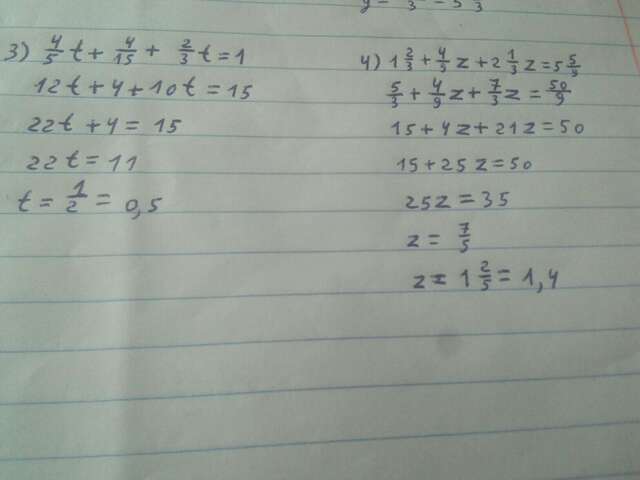 3) 4/5 t + 4/15 + 2/3 t = 1
12t + 4 + 10t = 15
22t + 4 = 15
22t = 11
t = 1/2 = 0,5
4) 1 2/3 + 4/9 z + 2 1/3 z = 5 5/9
5/3 + 4/9 z + 7/3 z = 50/9
15 + 4z + 21z = 50
15 + 25z = 50
25z = 35
z = 7/5
z = 1 2/5 = 1,4